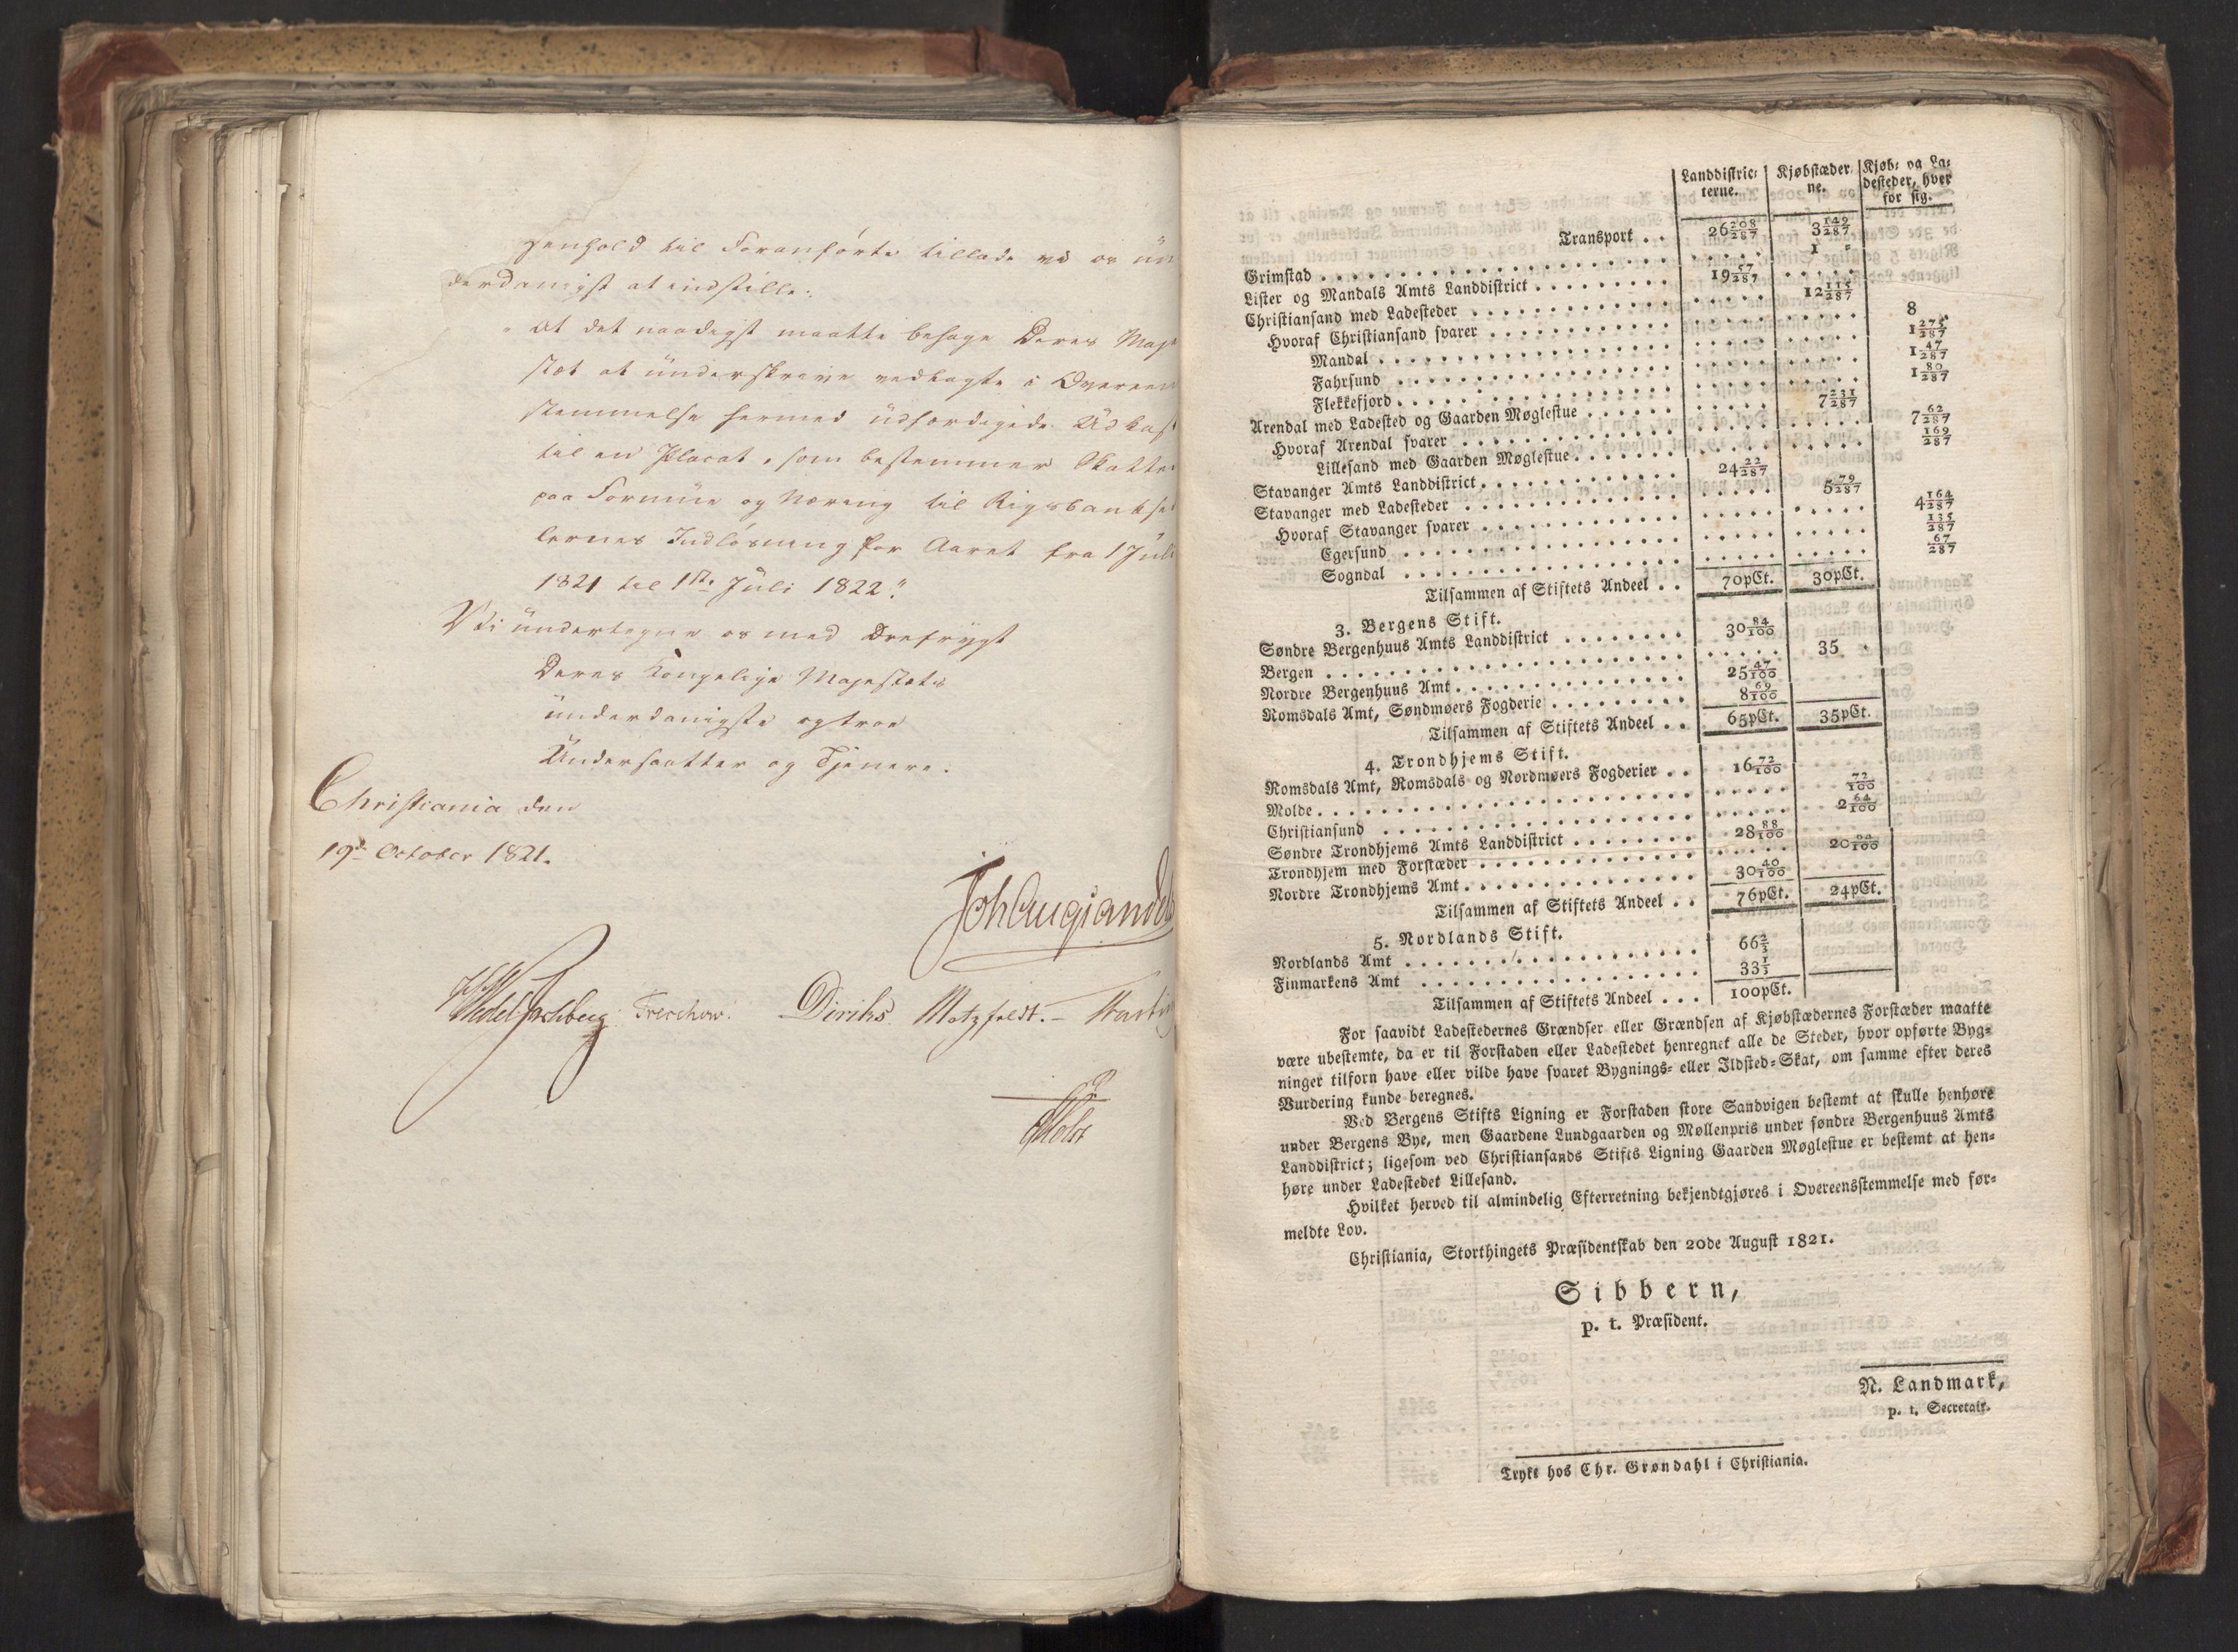 genhold til Foranførte tillade vi os un
derdanigst at indstille:
"At det naadigst maatte behage Deres Maje
stæt at underskrive vedlagte i Overeens
stemmelse hermed udfærdigede Udkast
til en Placat, som bestemmer Skatten
paa Formue og Næring til Rigsbanksed
lernes Indløsning for Aaret fra 1 Juli
1821 til 1ste Juli 1822."
Vi undertegne os med Ærefrygt
Deres Kongelige Majestæts
underdanigste og troe
Undersaatter og Tjenere.
Christiania den
19de October 1821.
Joh Aug Sandels
Wedel Jarlsberg Treschow. Diriks Motzfeldt. –
Holst
Landdistric-
terne. Kjøbstæder-
ne. Kjøb- og La-
desteder, hver
for sig.
Transport . . 26 208/287 3 149/287
Grimstad . . . 1 "
Lister og Mandals Amts Landdistrict . . . 19 57/287
Christiansand med Ladesteder . . . 12 115/287
Hvoraf Christiansand svarer . . . 8 "
Mandal . . . 1 275/287
Fahrsund . . . 1 47/287
Flekkefjord . . . 1 80/287
Arendal med Ladested og Gaarden Møglestue . . . 7 231/287
Hvoraf Arendal svarer . . . 7 62/287
Lillesand med Gaarden Møglestue . . . 169/287
Stavanger Amts Landdistrict . . . 24 22/287
Stavanger med Ladesteder . . . 5 79/287
Hvoraf Stavanger svarer . . . 4 164/287
Egersund . . . 135/287
Sogndal . . . 67/287
Tilsammen af Stiftets Andeel . . 70pCt. 30pCt.
3. Bergens Stift.
Søndre Bergenhuus Amts Landdistrict . . . 30 84/100
Bergen . . . 35 .
Nordre Bergenhuus Amt . . . 25 47/100
Romsdals Amt, Søndmøers Fogderie . . . 8 69/100
Tilsammen af Stiftets Andeel . . 65pCt. 35pCt.
4. Trondhjems Stift.
Romsdals Amt, Romsdals og Nordmøers Fogderier . . 16 72/100
Molde . . . 72/100
Christiansund . . . 2 64/100
Søndre Trondhjems Amts Landdistrict . . . 28 88/100
Trondhjem med Forstæder . . . 20
Nordre Trondhjems Amt . . . 30 40/100
Tilsammen af Stiftets Andeel . . 76pCt. 24pCt.
5. Nordlands Stift.
Nordlands Amt . . . 66 2/3
Finmarkens Amt . . . 33 1/3
Tilsammen af Stiftets Andeel . . . 100pCt.
For saavidt Ladestedernes Grændser eller Grændsen af Kjøbstædernes Forstæder maatte
være ubestemte, da er til Forstaden eller Ladestedet henregnet alle de Steder, hvor opførte Byg-
ninger tilforn have eller vilde have svaret Bygnings- eller Ildsted-Skat, om samme efter deres
Vurdering kunde beregnes.
Ved Bergens Stifts Ligning er Forstaden store Sandvigen bestemt at skulle henhøre
under Bergens Bye, men Gaardene Lundgaarden og Møllenpris under søndre Bergenhuus Amts
Landdistrict; ligesom ved Christiansands Stifts Ligning Gaarden Møglestue er bestemt at hen-
høre under Ladestedet Lillesand.
Hvilket herved til almindelig Efterretning bekjendtgjøres i Overeensstemmelse med før-
meldte Lov.
Christiania, Storthingets Præsidentskab den 20de August 1821.
Sibbern,
p. t. Præsident.
N. Landmark,
p. t. Secretair.
Trykt hos Chr. Grøndahl i Christiania.